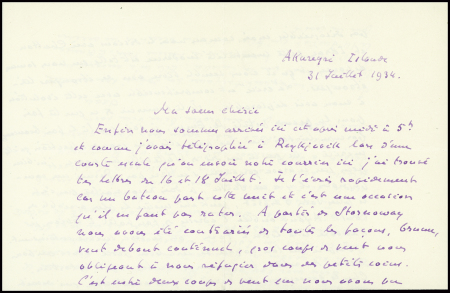 Akureyri Islande
31 Juillet 1934.
Ma soeur chérie
Enfin nous sommes arrivés ici cet après midi à 5h
et comme j'avais télégraphié à Reykjavik lors d'une
courte escale qu'on envoie notre courrier ici j'ai trouvé
tes lettres du 16 et 18 Juillet. Je t'écris rapidement
car un bateau part cette nuit et c'est une occasion
qu'il ne faut pas rater. A partir de Stornoway
nous avons été contrariés de toutes les façons, brume,
vent debout continuel, gros coups de vent nous
obligeant à nous réfugier dans des petits coins.
C'est entre deux coups de vent que nous avons pu